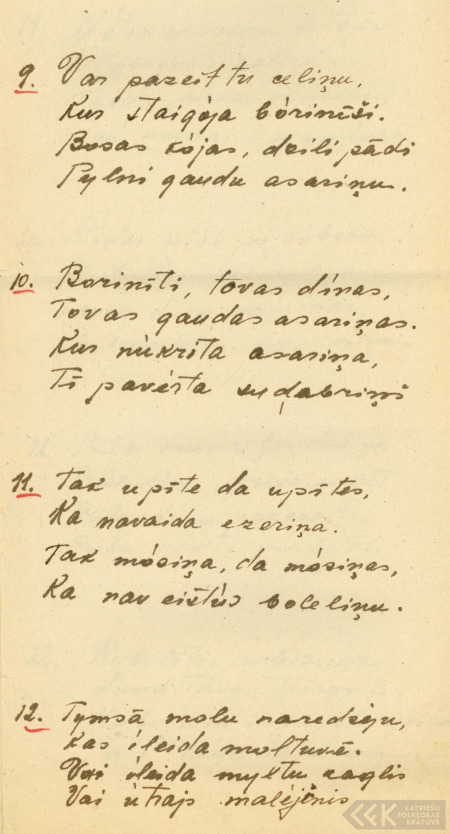 9. Var pazeit tu celiņu,
Kur staigòja bòrinīši.
Bosas kòjas, dzili pādi
Pylni gaudu asariņu.
10. Borinīti, tovas dínas,
Tovas gaudas asariņas.
Kur nùkrita asariņa,
Tī pavērta sudabriņš
11. Tak upīte da upītes,
Ka navaida ezeriņa.
Tak mòsiņa, da mòsiņas,
Ka nav eistùs boleliņu.
12. Tymsā molu naredzēju,
Kas íleida moltuvē.
Vai íleida myltu zaglis
Vai ùtrajs malējénis
LATVIEŠU
FOLKLORAS
KRĀTUVE